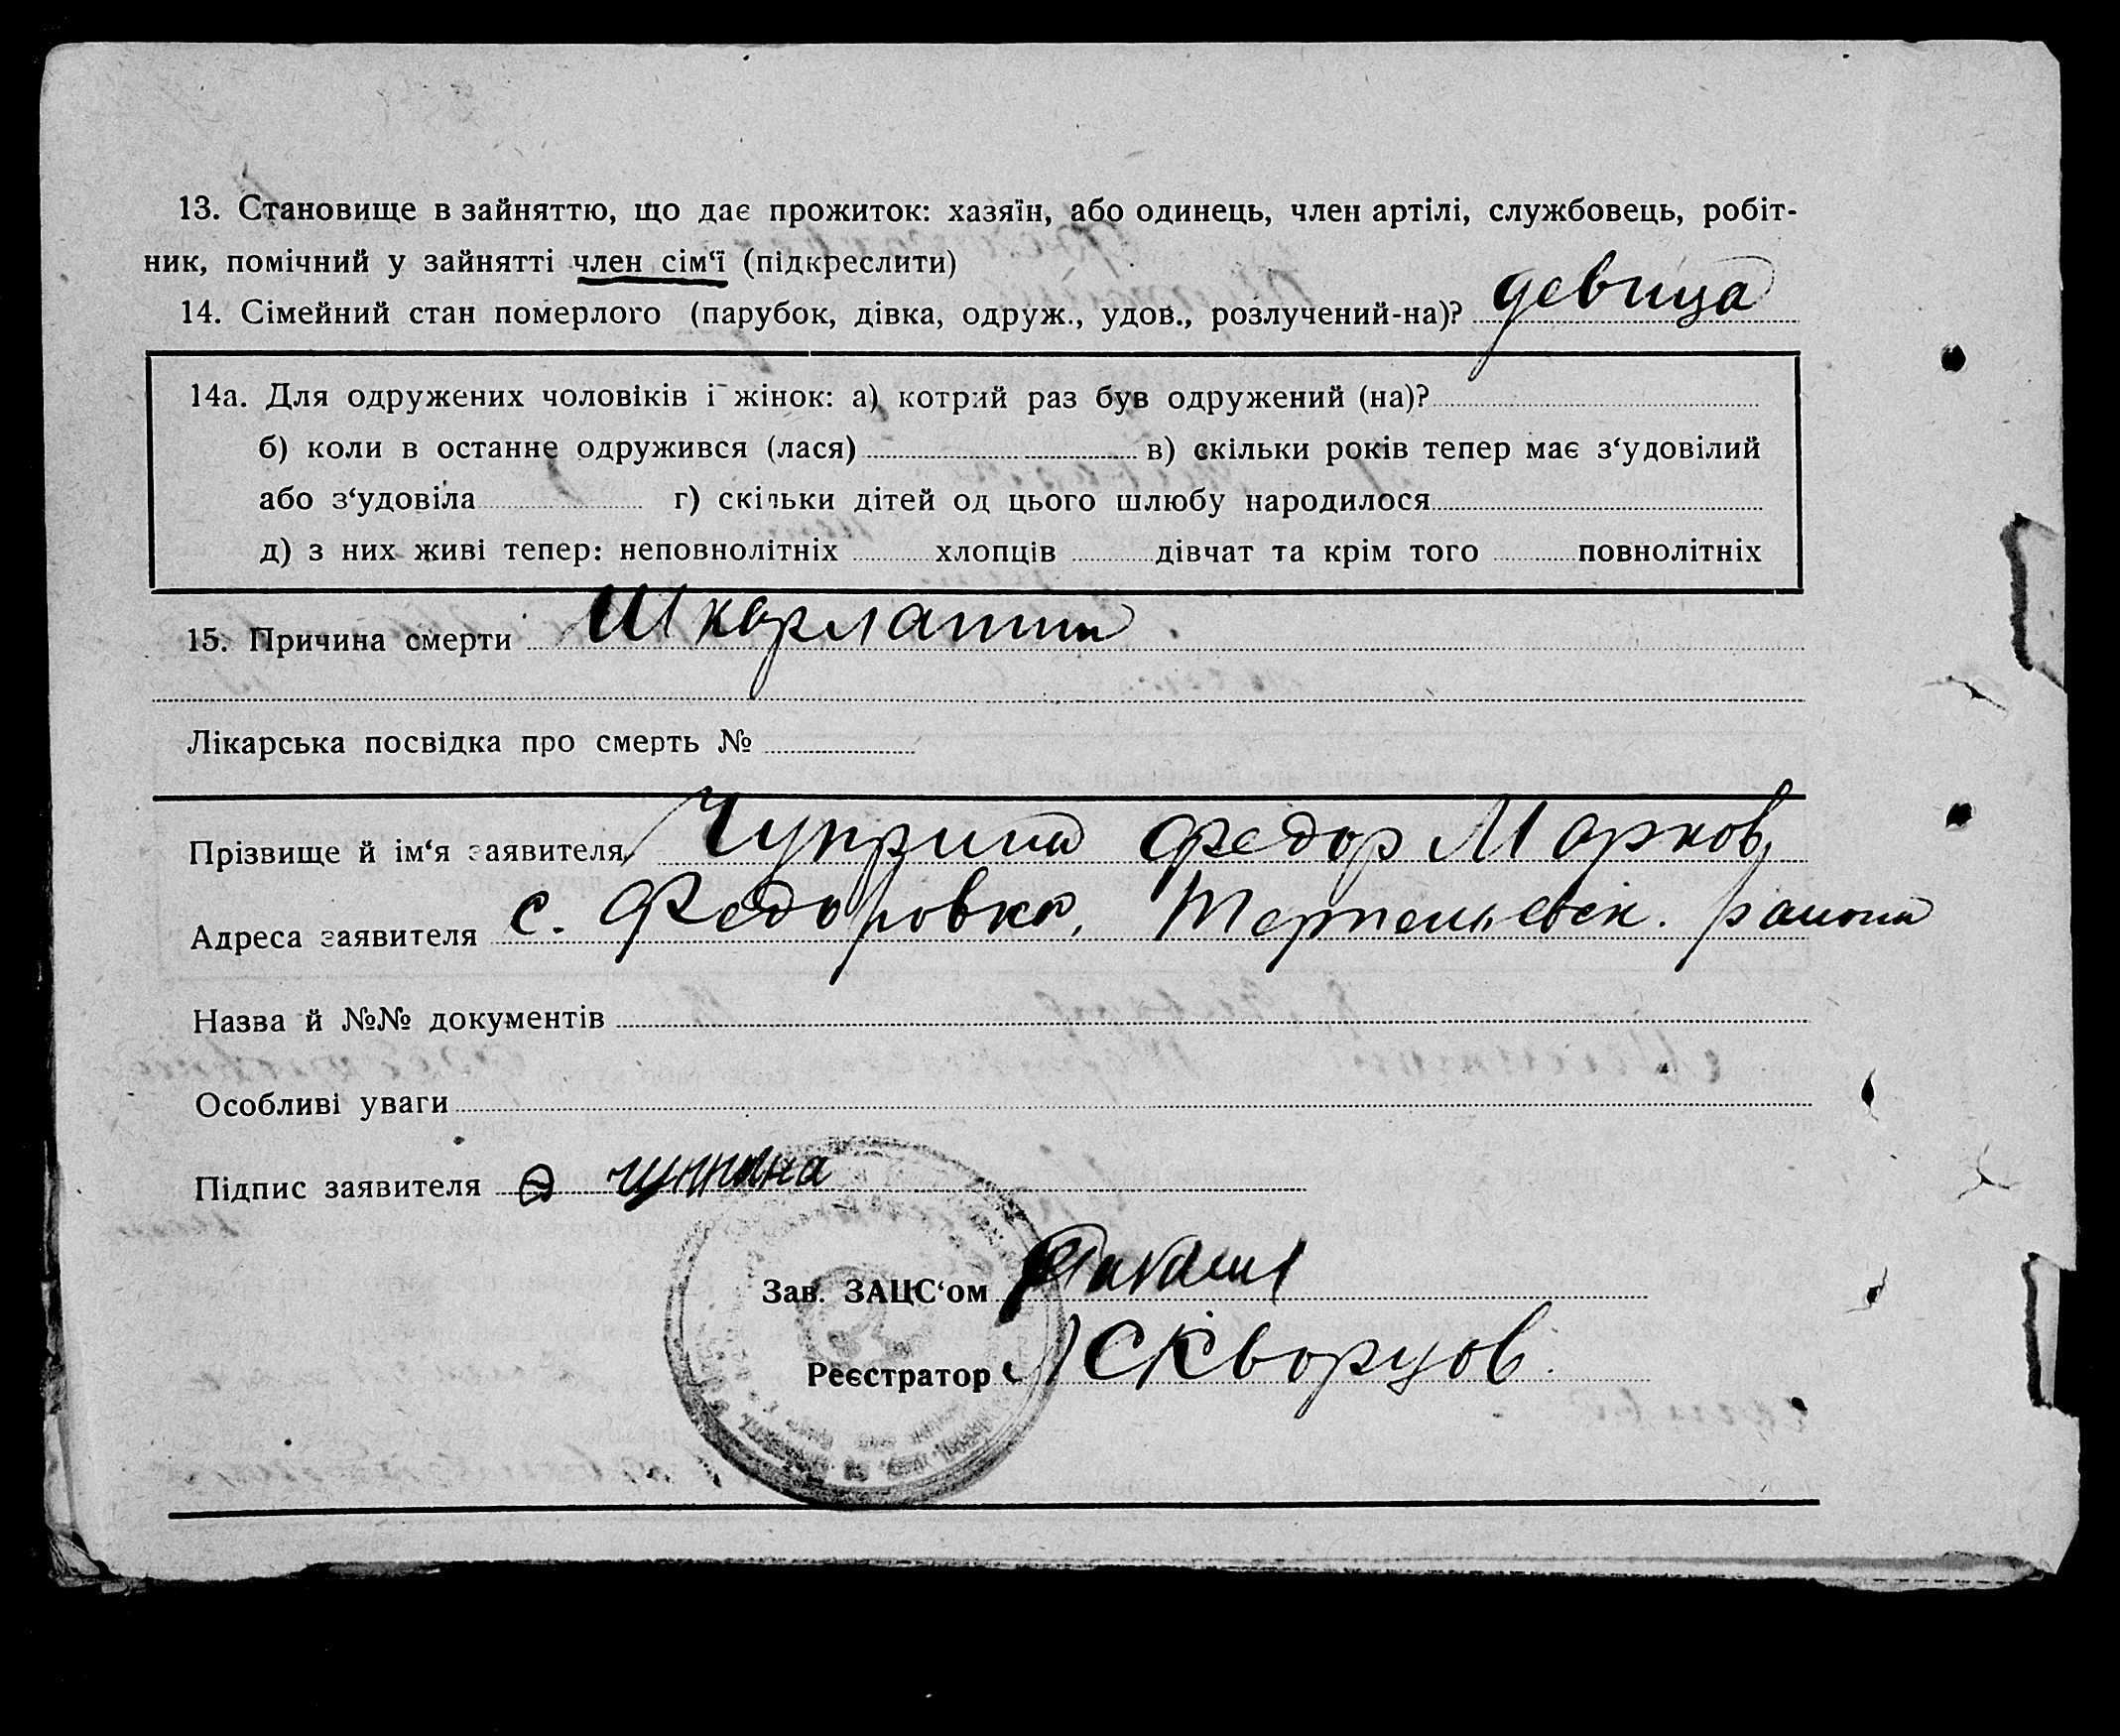 13. Становище в зайняттю, що дає прожиток: хазяїн, або одинець, член артілі, службовець, робіт-
ник, помічний у зайнятті член сім‘ї (підкреслити)
14. Сімейний стан померлого (парубок, дівка, одруж., удов., розлучений-на)? девица
14а. Для одружених чоловіків і жінок: а) котрий раз був одружений (на)?
б) коли в останнє одружився (лася) в) скільки років тепер має з‘удовілий
або з‘удовіла г) скільки дітей од цього шлюбу народилося
д) з них живі тепер: неповнолітніх хлопців дівчат та крім того повнолітніх
15. Причина смерти Шкарлатина
Лікарська посвідка про смерть №
Прізвище й ім‘я заявителя Чуприна Федор Марков
Адреса заявителя с. Федоровка, района
Назва й №№ документів
Особливі уваги
Підпис заявителя
Зав. ЗАЦС‘ом
Реєстратор Скворцов